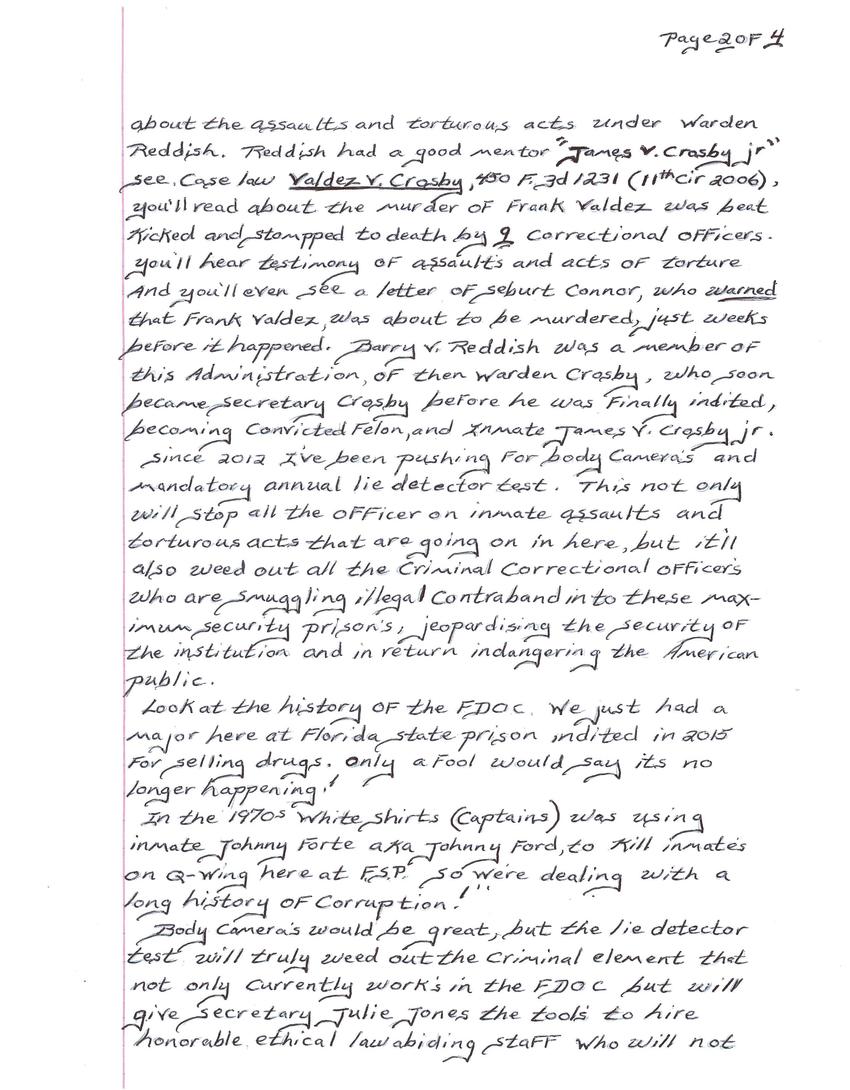 Page 2 OF 4
about the assaults and torturous acts under Warden
Reddish. Reddish had a good mentor "James V. Crosby jr"
see. Case law Valdez V. Crosby, 450 F. 3d 1231 (11th Cir 2006),
you'll read about the murder OF Frank Valdez was beat
Kicked and stompped to death by 9 Correctional OFFicers.
you'll hear testimony OF assaults and acts OF torture
And you'll even see a letter OF seburt Connor, who warned
that Frank Valdez, was about to be murdered, just weeks
before it happened. Barry V. Reddish was a member OF
this Administration, OF then Warden Crosby, who soon
became secretary Crosby before he was Finally indited,
becoming Convicted Felon, and Inmate James V. Crosby jr.
since 2012 I've been pushing For body Camera's and
mandatory annual lie detector test. This not only
will stop all the OFFicer on inmate assaults and
torturous acts that are going on in here, but it'll
also weed out all the Criminal Correctional OFFicer's
who are smuggling illegal Contraband in to these max-
imum security prison's, jeopardising the security OF
the institution and in return indangering the American
public.
Look at the history OF the F.D.O.C. We just had a
major here at Florida state prison indited in 2015
For selling drugs. only a Fool would say its no
longer happening!
In the 1970s White shirts (Captains) was using
inmate Johnny Forte aka Johnny Ford, to Kill inmate's
on Q-Wing here at F.S.P. so we're dealing with a
long history OF Corruption!
Body Camera's would be great, but the lie detector
test will truly weed out the Criminal element that
not only Currently work's in the FDOC but will
give secretary Julie Jones the tools to hire
honorable ethical law abiding staFF who will not